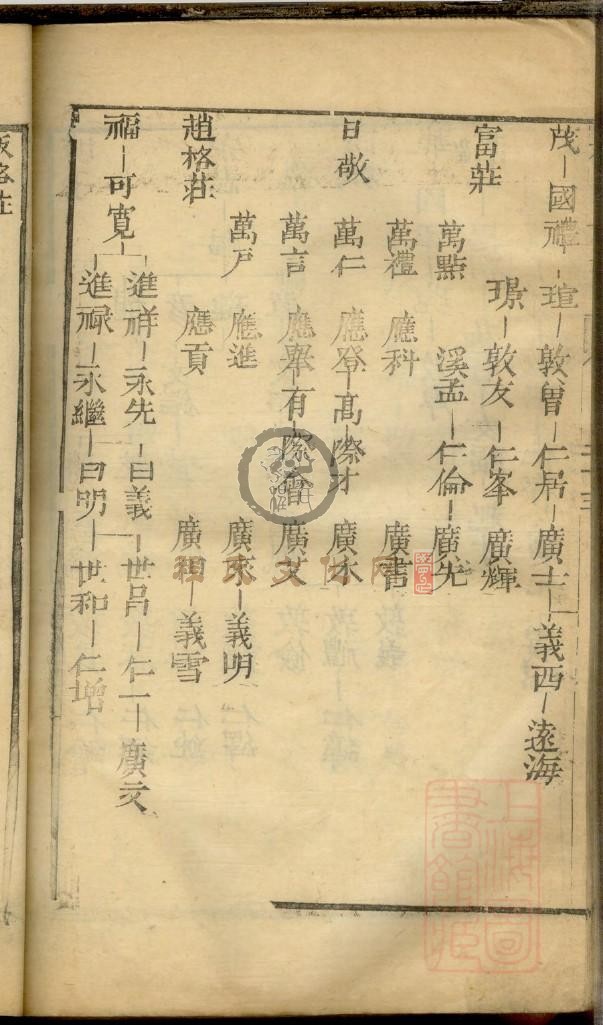 茂 國禮 瑄 敦曾 仁居 廣士 義西 遠海
璟 敦友 仁峯 廣輝
富莊
萬點 溪孟 仁倫 廣先
萬禮 應科 廣書
日敬 萬仁 應登 高 際才 廣水
萬言 應舉 有際 廣艾
萬戶 應進 廣 義明
趙格莊
應貢 廣 義雪
進祥 永先 曰義 世呂 仁一 廣文
福 可寬
進禄 永繼 曰明 世和 仁增
上海圖書館藏